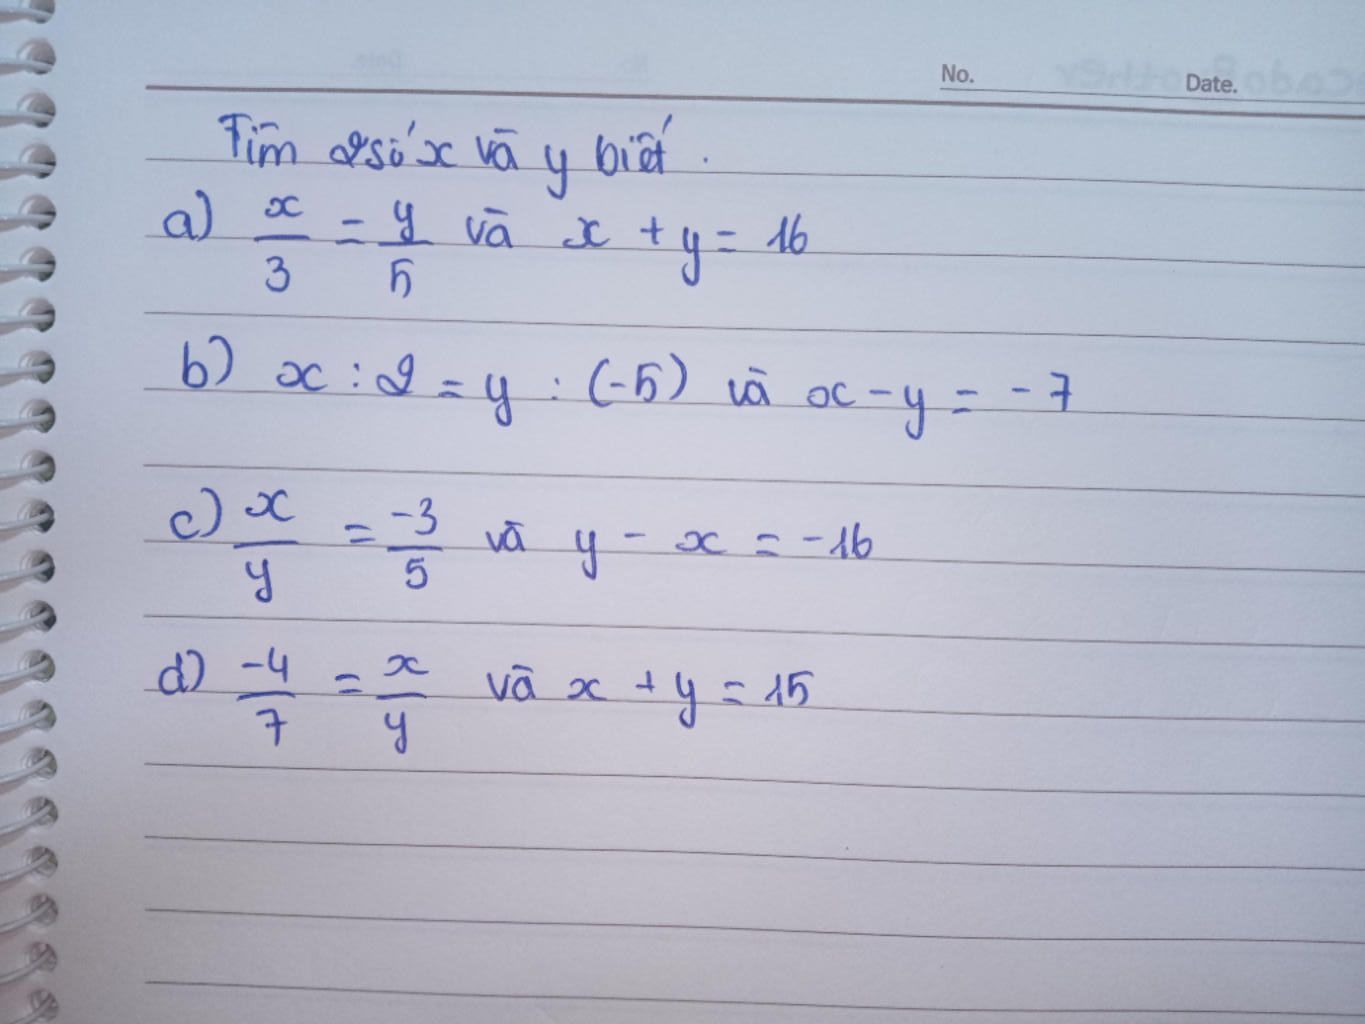 No. Date.
Tìm 2 số x và y biết.
a) x/3 = y/5 và x + y = 16
b) x : 2 = y : (-5) và x - y = -7
c) x/y = -3/5 và y - x = -16
d) -4/7 = x/y và x + y = 15